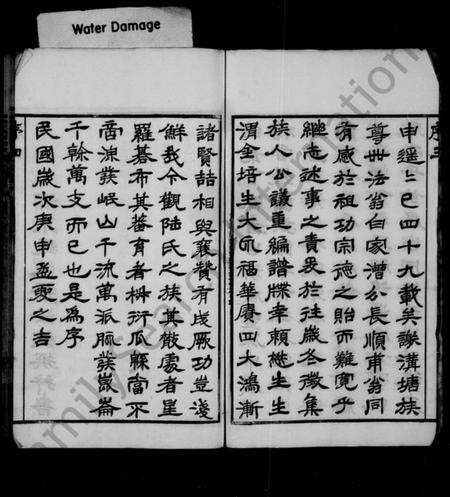 Water Damage
序三
申遥遥已四十九載矣謙溝塘族
尊世法翁白家漕公長順甫翁同
有感於祖功宗德之貽而難寬乎
繼志述事之責爰於往歲冬徵集
族人公議重編譜牒幸賴繼生生
渭全培生大永福華賡四大鴻漸
諸賢喆相與襄贊有成厥功豈淺
鮮哉今觀陸氏之族其散處者星
羅棊布其蕃育者枡衍瓜綿當不
啻源發岷山千流萬派脈發崑崙
千榦萬支而已也是為序
民國歲次庚申孟夏之吉
序四
FamilySearch International